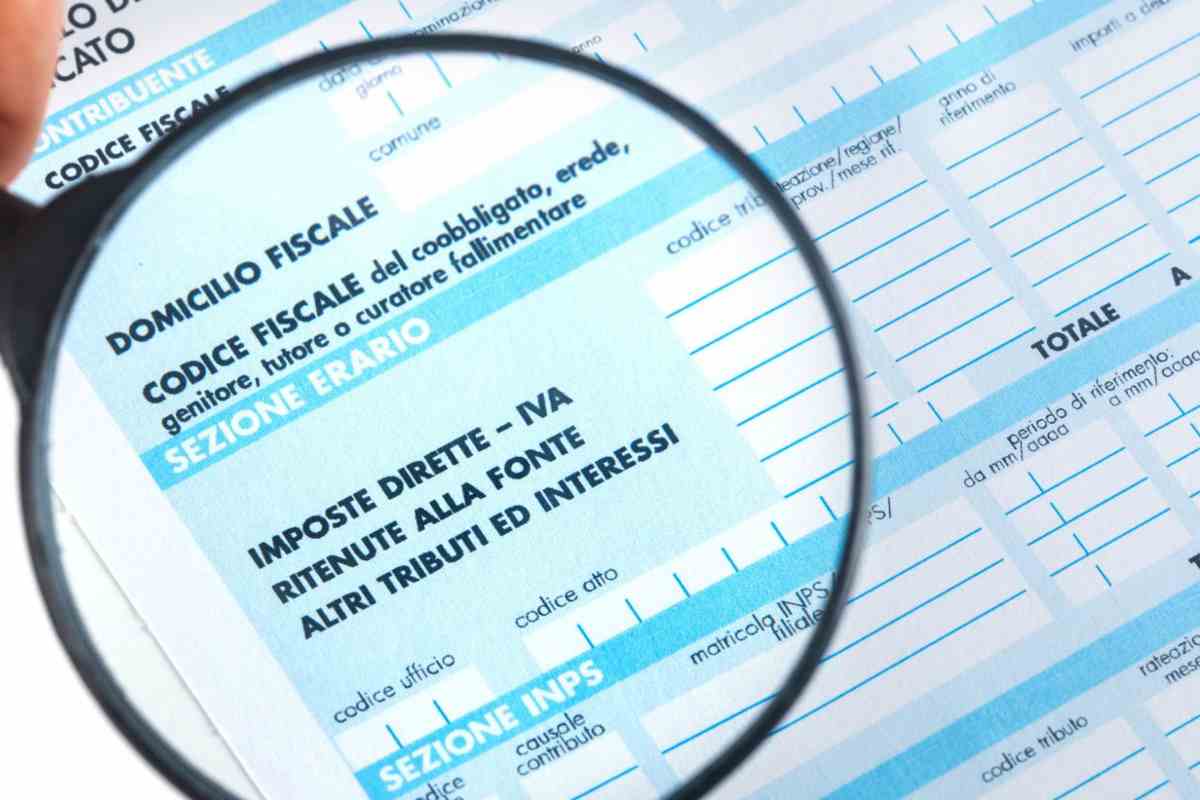 CATO
CONTRIBUENTE
CODICE FISCALE
giorno
comune
DOMICILIO FISCALE
CODICE FISCALE del coobbligato, erede,
genitore, tutore o curatore fallimentare
SEZIONE ERARIO
codice trib
teazione/regione/
prov./mese rif.
anno di
riferimento
importi a deb
IMPOSTE DIRETTE – IVA
RITENUTE ALLA FONTE
ALTRI TRIBUTI ED INTERESSI
TOTALE
A
codice ufficio
codice atto
SEZIONE INPS
causale
contributo
matricola INPS/
filiale
periodo di riferimento:
da mm/aaaa
a mm/aaaa
codice tributo
rateazio
mese